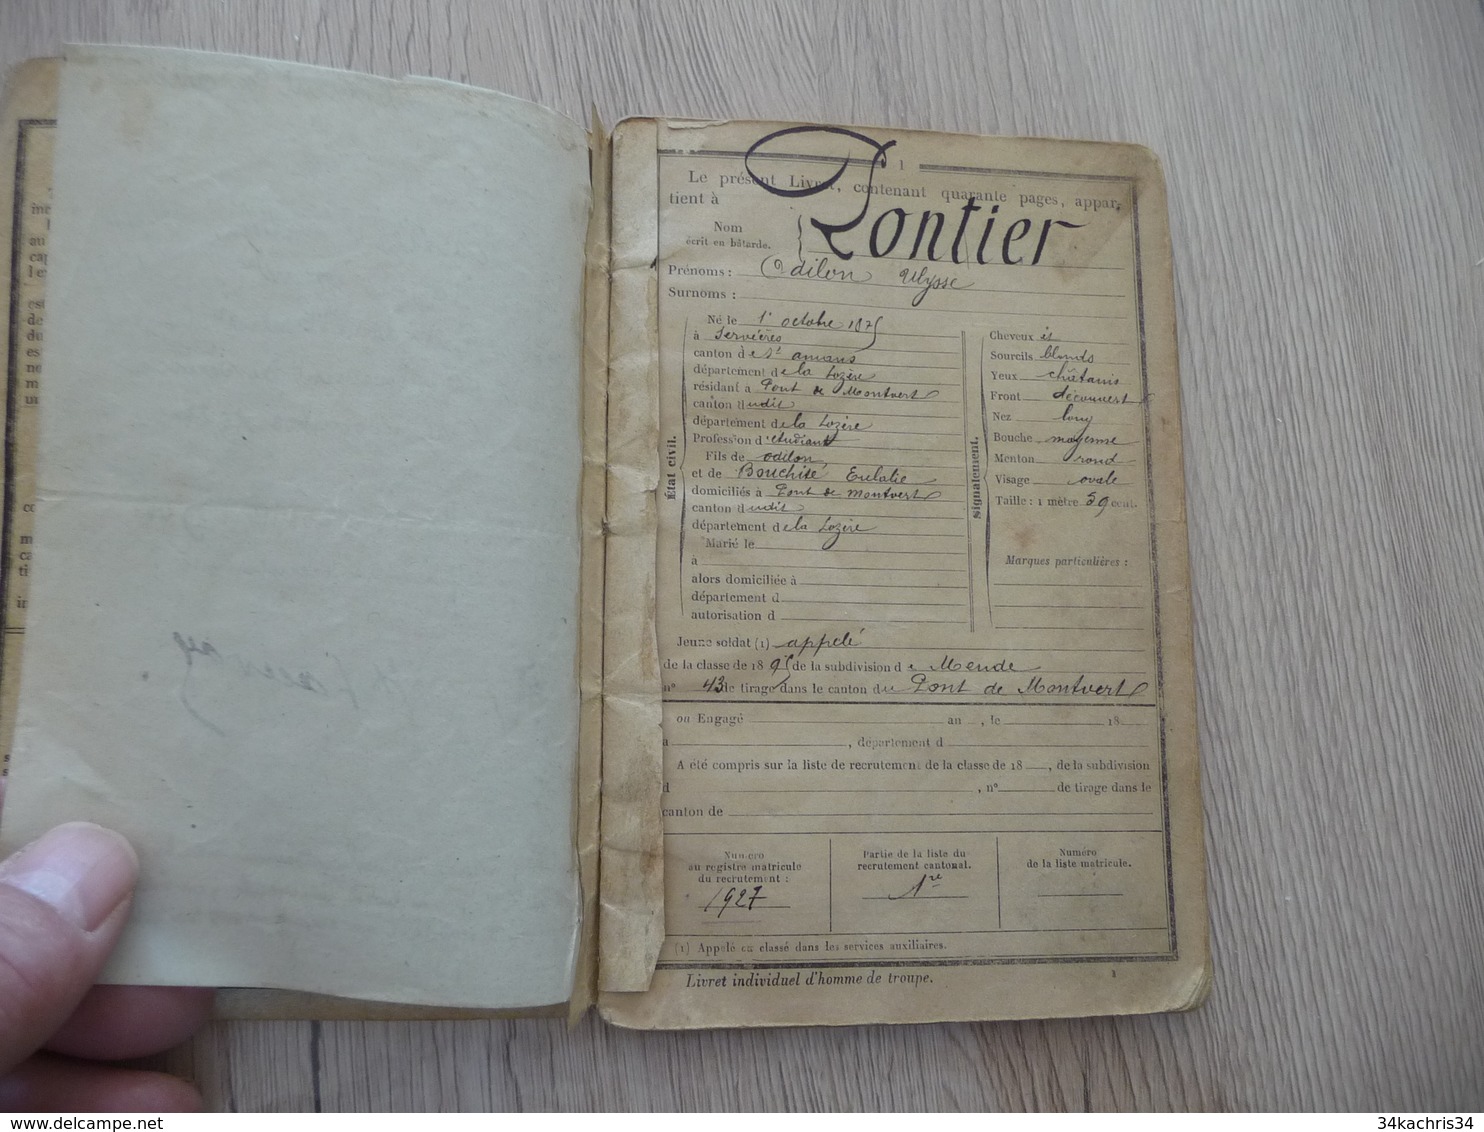 1
Le présent Livret, contenant quarante pages, appar-
tient à
Nom
écrit en bâtarde.
Pontier
Prénoms : Odilon Ulysse
Surnoms :
État civil.
Né le 1er octobre 1875
à Servières
canton de St amans
département de la Lozère
résidant à Pont de Montvert
canton dudit
département de la Lozère
Profession d'étudiant
Fils de odilon
et de Bouchité Eulalie
domiciliés à Pont de montvert
canton dudit
département de la Lozère
Marié le
à
alors domiciliée à
département d
autorisation d
signalement.
Cheveux et
Sourcils blonds
Yeux châtains
Front découvert
Nez long
Bouche moyenne
Menton rond
Visage ovale
Taille : 1 mètre 59 cent.
Marques particulières :
Jeune soldat (1) appelé
de la classe de 1895 de la subdivision de Mende
n° 43 de tirage dans le canton du Pont de Montvert
ou Engagé an , le 18
à , département d
A été compris sur la liste de recrutement de la classe de 18 , de la subdivision
d , n° de tirage dans le
canton de
Numéro
au registre matricule
du recrutement :
1927
Partie de la liste du
recrutement cantonal.
1re
Numéro
de la liste matricule.
(1) Appelé ou classé dans les services auxiliaires.
Livret individuel d'homme de troupe.
1
34kachris34